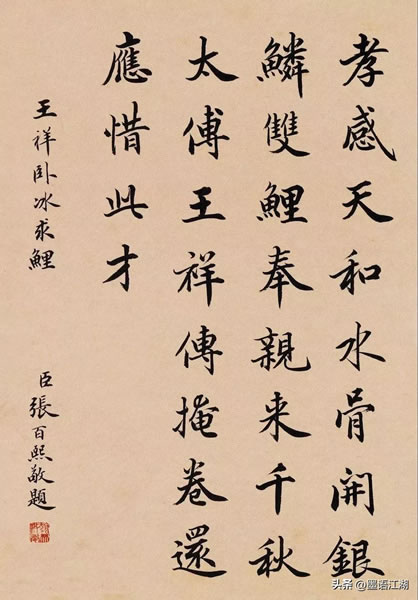 孝感天和水骨開銀
鱗雙鯉奉親来千秋
太傅王祥傳掩卷還
應惜此才
王祥卧冰求鯉
臣張百熙敬題
头条 @墨语江湖